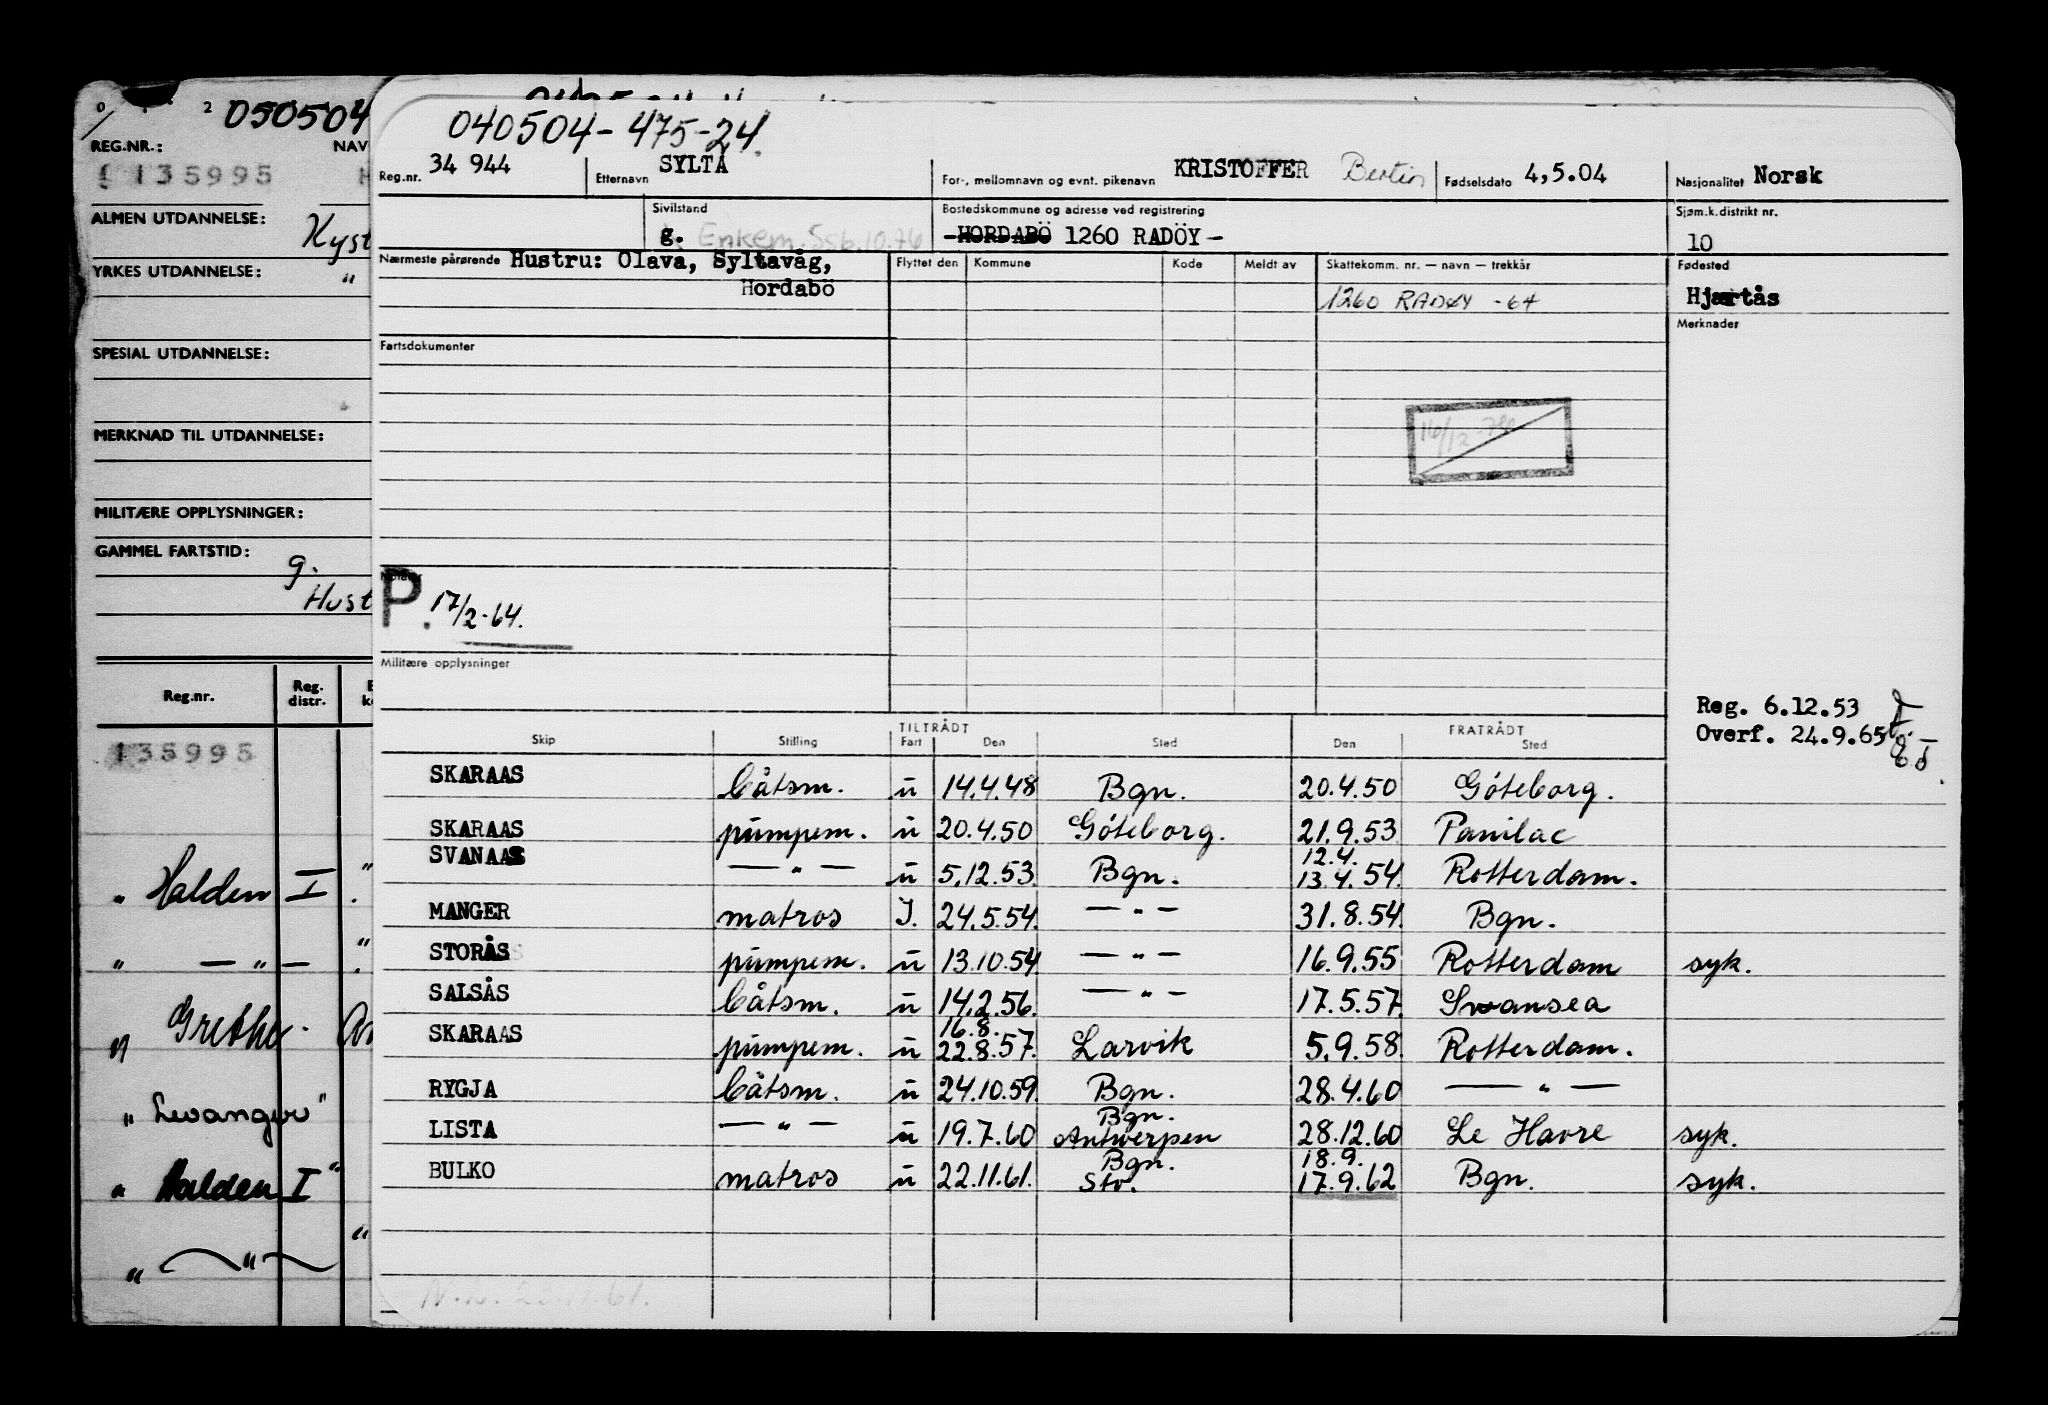 050504
REG.NR.: NAV
135995 H
ALMEN UTDANNELSE: Kyst
YRKES UTDANNELSE: "
SPESIAL UTDANNELSE:
MERKNAD TIL UTDANNELSE:
MILITÆRE OPPLYSNINGER:
GAMMEL FARTSTID:
g.
Hust
Reg.nr. Reg. distr.
135995
" Halden I "
" — " — "
" Grethe
" Levanger"
" Halden I"
" — " —
040504-475-24.
Reg.nr. 34 944 Etternavn SYLTA For-, mellomnavn og evnt. pikenavn KRISTOFFER Bertin Fødselsdato 4,5.04 Nasjonalitet Norsk
Sivilstand g. Enkem. Ssb.10.76 Bostedskommune og adresse ved registrering -HORDABÖ 1260 RADÖY- Sjøm.k.distrikt nr. 10
Nærmeste pårørende Hustru: Olava, Syltavåg, Flyttet den Kommune Kode Meldt av Skattekomm. nr. — navn — trekkår Fødested
Hordabö 1260 RADØY -64 Hjærtås
Merknader
Fartsdokumenter
16/12-
Notater
P. 17/2-64.
Militære opplysninger
Reg. 6.12.53
Overf. 24.9.65
TILTRÅDT FRATRÅDT
Skip Stilling Fart Den Sted Den Sted
SKARAAS båtsm. u 14.4.48 Bgn. 20.4.50 Göteborg.
SKARAAS pumpem. u 20.4.50 Göteborg. 21.9.53 Pauilac
SVANAAS — " — u 5.12.53 Bgn. 12.4. 13.4.54. Rotterdam.
MANGER matros I. 24.5.54. — " — 31.8.54. Bgn.
STORÅS pumpem. u 13.10.54. — " — 16.9.55 Rotterdam syk.
SALSÅS båtsm. u 14.2.56. — " — 17.5.57. Swansea
SKARAAS pumpem. u 16.8. 22.8.57. Larvik 5.9.58. Rotterdam.
RYGJA båtsm. u 24.10.59. Bgn. 28.4.60 — " —
LISTA — " — u 19.7.60 Bgn. Antwerpen 28.12.60 Le Havre syk.
BULKO matros u 22.11.61. Bgn. Sto. 18.9. 17.9.62 Bgn. syk.